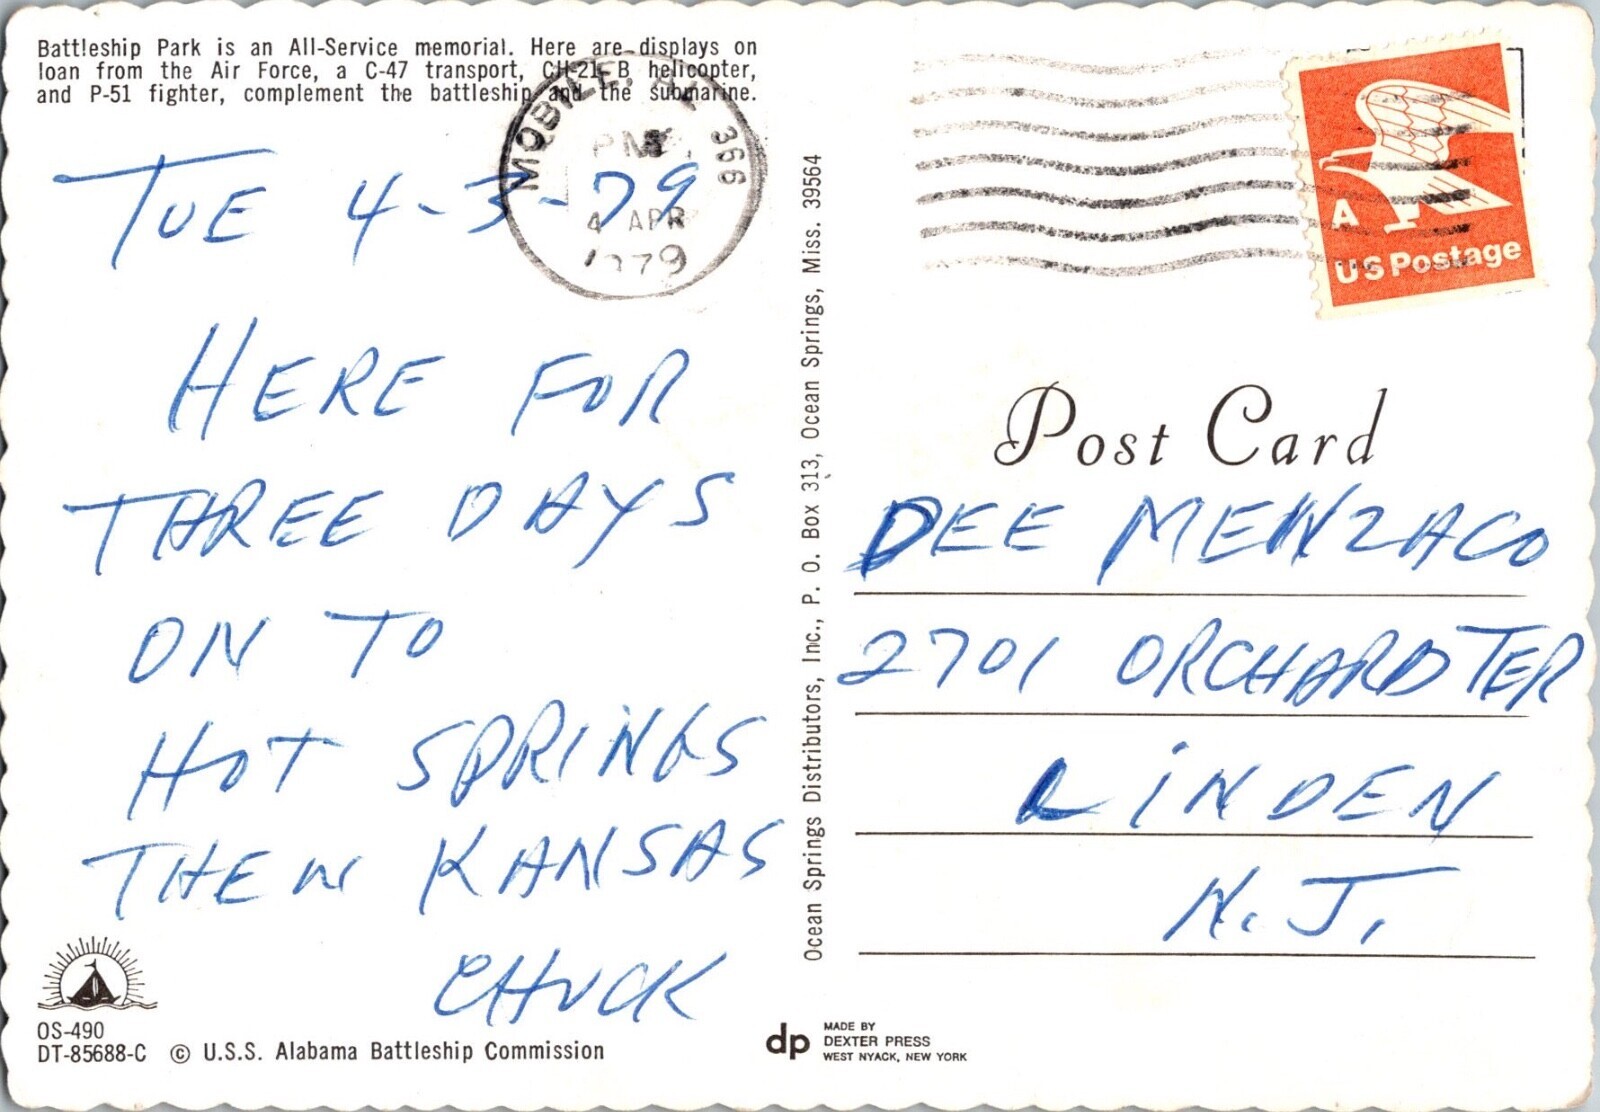 Battleship Park is an All-Service memorial. Here are displays on
loan from the Air Force, a C-47 transport, CH-21 B helicopter,
and P-51 fighter, complement the battleship and the submarine.
MOBILE, AL 366
PM
4 APR
1979
TUE 4-3-79
HERE FOR
THREE DAYS
ON TO
HOT SPRINGS
THEN KANSAS
CHUCK
OS-490
DT-85688-C © U.S.S. Alabama Battleship Commission
Ocean Springs Distributors, Inc., P. O. Box 313, Ocean Springs, Miss. 39564
dp
MADE BY
DEXTER PRESS
WEST NYACK, NEW YORK
A
US Postage
Post Card
DEE MENZACO
2701 ORCHARD TER
LINDEN
N.J.